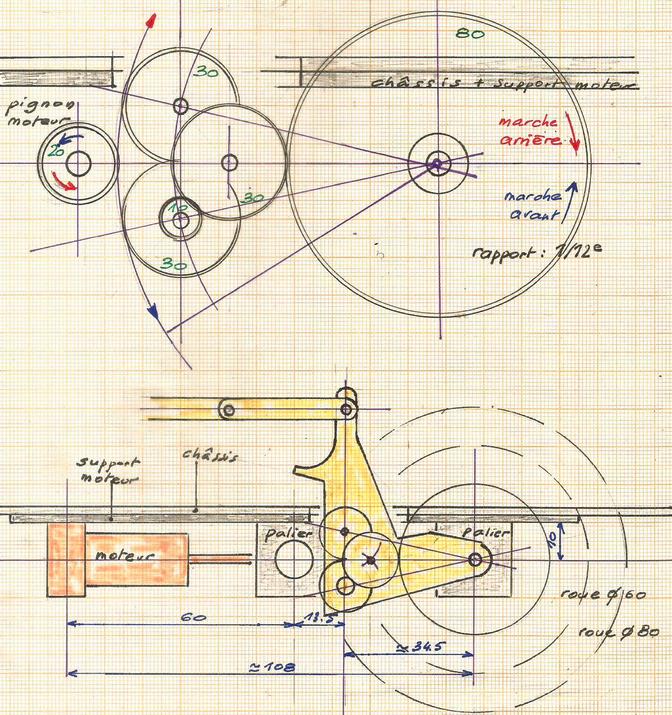 80
30
châssis + support moteur
pignon
moteur
20
marche
arrière
30
10
marche
avant
30
rapport : 1/12e
châssis
support
moteur
palier
palier
moteur
10
roue ø 60
60
13.5
roue ø 80
≃ 34.5
≃ 108